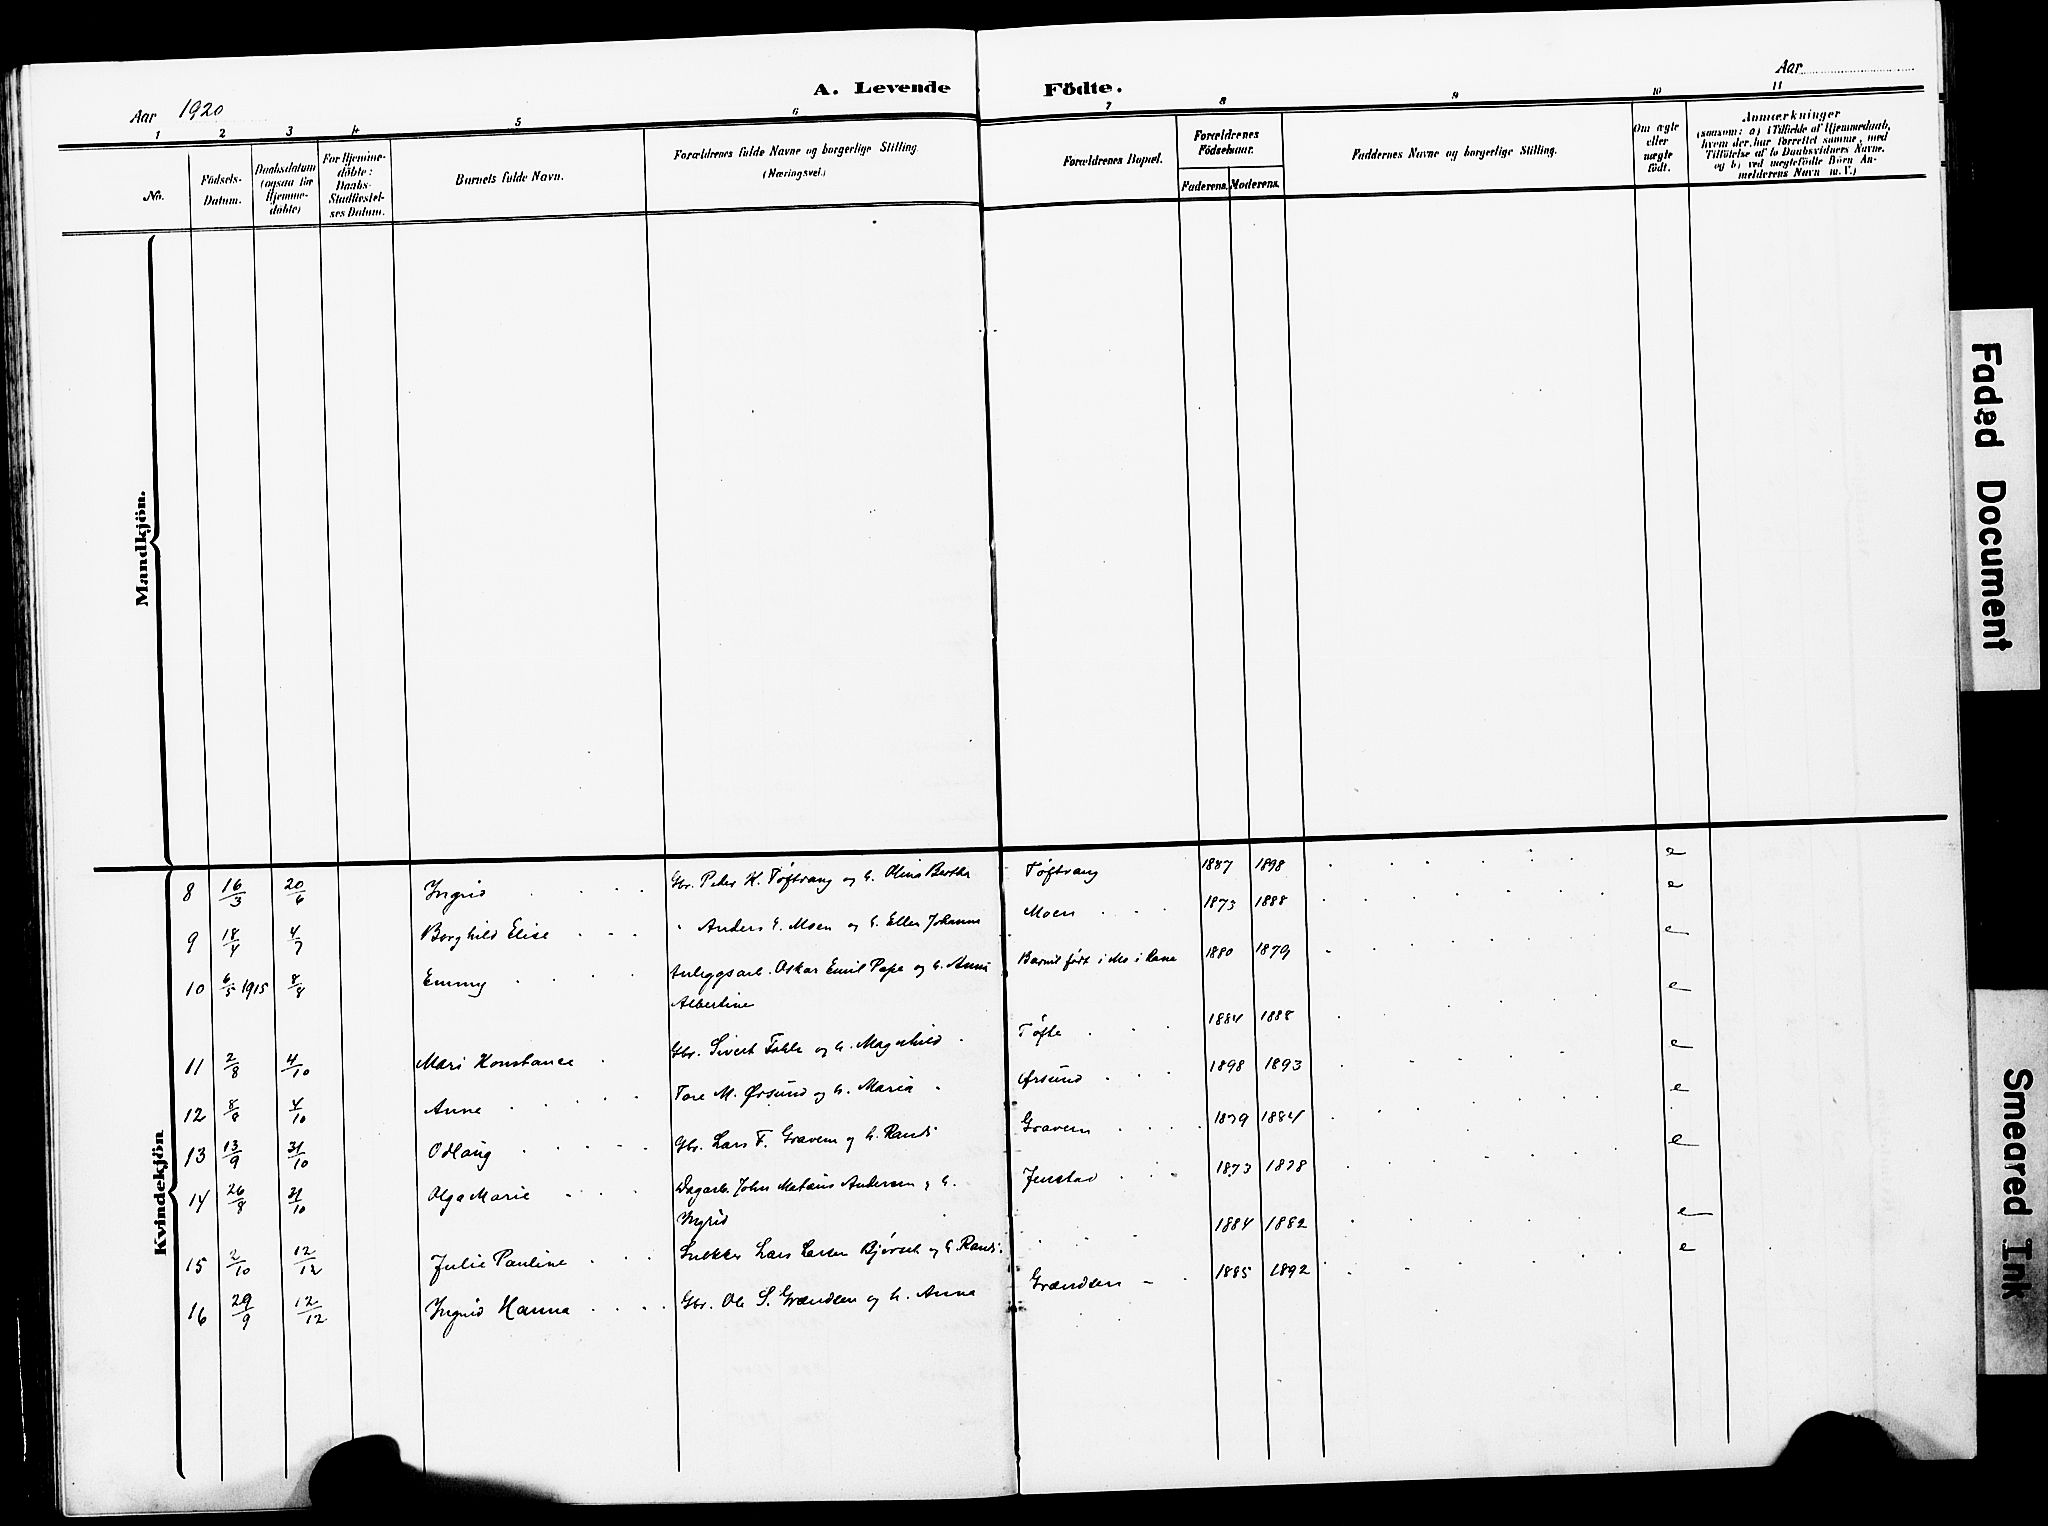 Aar 1920
A. Levende Födte.
Aar
1 2 3 4 5 6 7 8 9 10 11
No.
Födsels-Datum.
Daabsdatum (ogsaa for Hjemme-döbte)
For Hjemme-döbte: Daabs-Stadfæstel-ses Datum.
Barnets fulde Navn.
Forældrenes fulde Navne og borgerlige Stilling.
(Næringsvei.)
Forældrenes Bopæl.
Forældrenes Födselsaar.
Faderens. Moderens.
Faddernes Navne og borgerlige Stilling.
Om ægte eller uægte födt.
Anmærkninger
(saasom: a) i Tilfælde af Hjemmedaab,
hvem der har forrettet samme, med
Tilföielse af to Daabsvidners Navne,
og b) ved uægtefödte Börn An-
melderens Navn m. V.)
Mandkjön.
Kvindekjön
8 16/3 20/6 Ingrid Gbr. Peder K. Tøftvang og h. Olina Berthe Tøftvang 1887 1898 e
9 18/4 4/7 Borghild Elise " Anders E. Moen og h. Ellen Johanne Moen 1873 1888 e
10 6/5 1915 8/8 Emmy Anlegsarb. Oskar Emil Pape og h. Anna Barnet født i Mo i Rana 1880 1879 e
Albertine
11 2/8 4/10 Mari Konstance Gbr. Sivert Tøfte og h. Magnhild Tøfte 1884 1888 e
12 8/8 4/10 Anne Tore M. Ørsund og h. Maria Ørsund 1898 1893 e
13 13/9 31/10 Odlaug Gbr. Lars F. Gravem og h. Randi Gravem 1879 1884 e
14 26/8 31/10 Olga Marie Dagarb. John Mataus Andersen og h. Jenstad 1873 1878 e
Ingrid
15 2/10 12/12 Julie Pauline Snekker Lars Larsen Bjørset og h. Randi 1884 1882 e
16 29/9 12/12 Ingrid Hanna Gbr. Ole S. Grændsen og h. Anna Grændsen 1885 1892 e
Faded Document
Smeared Ink